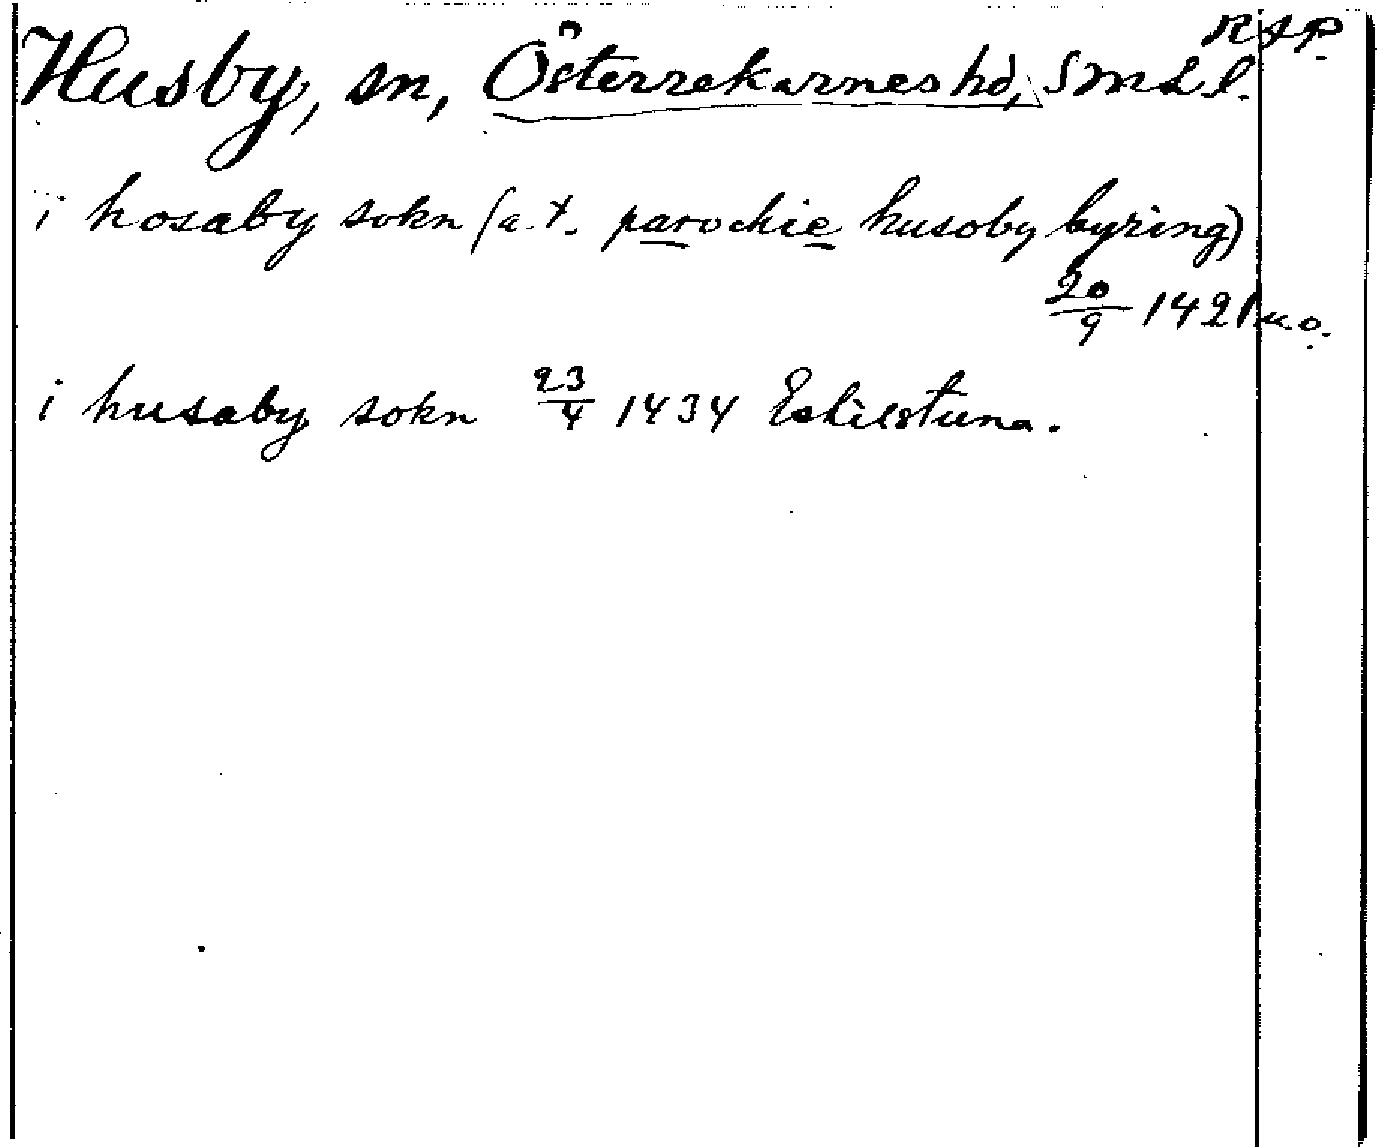 RAP.
Husby, sn, Österrekarnes hd, SmLl.
i hosaby sokn (a.t. parochie husoby byring)
20/9 1421 u.o.
i husaby sokn 23/4 1434 Eskilstuna.